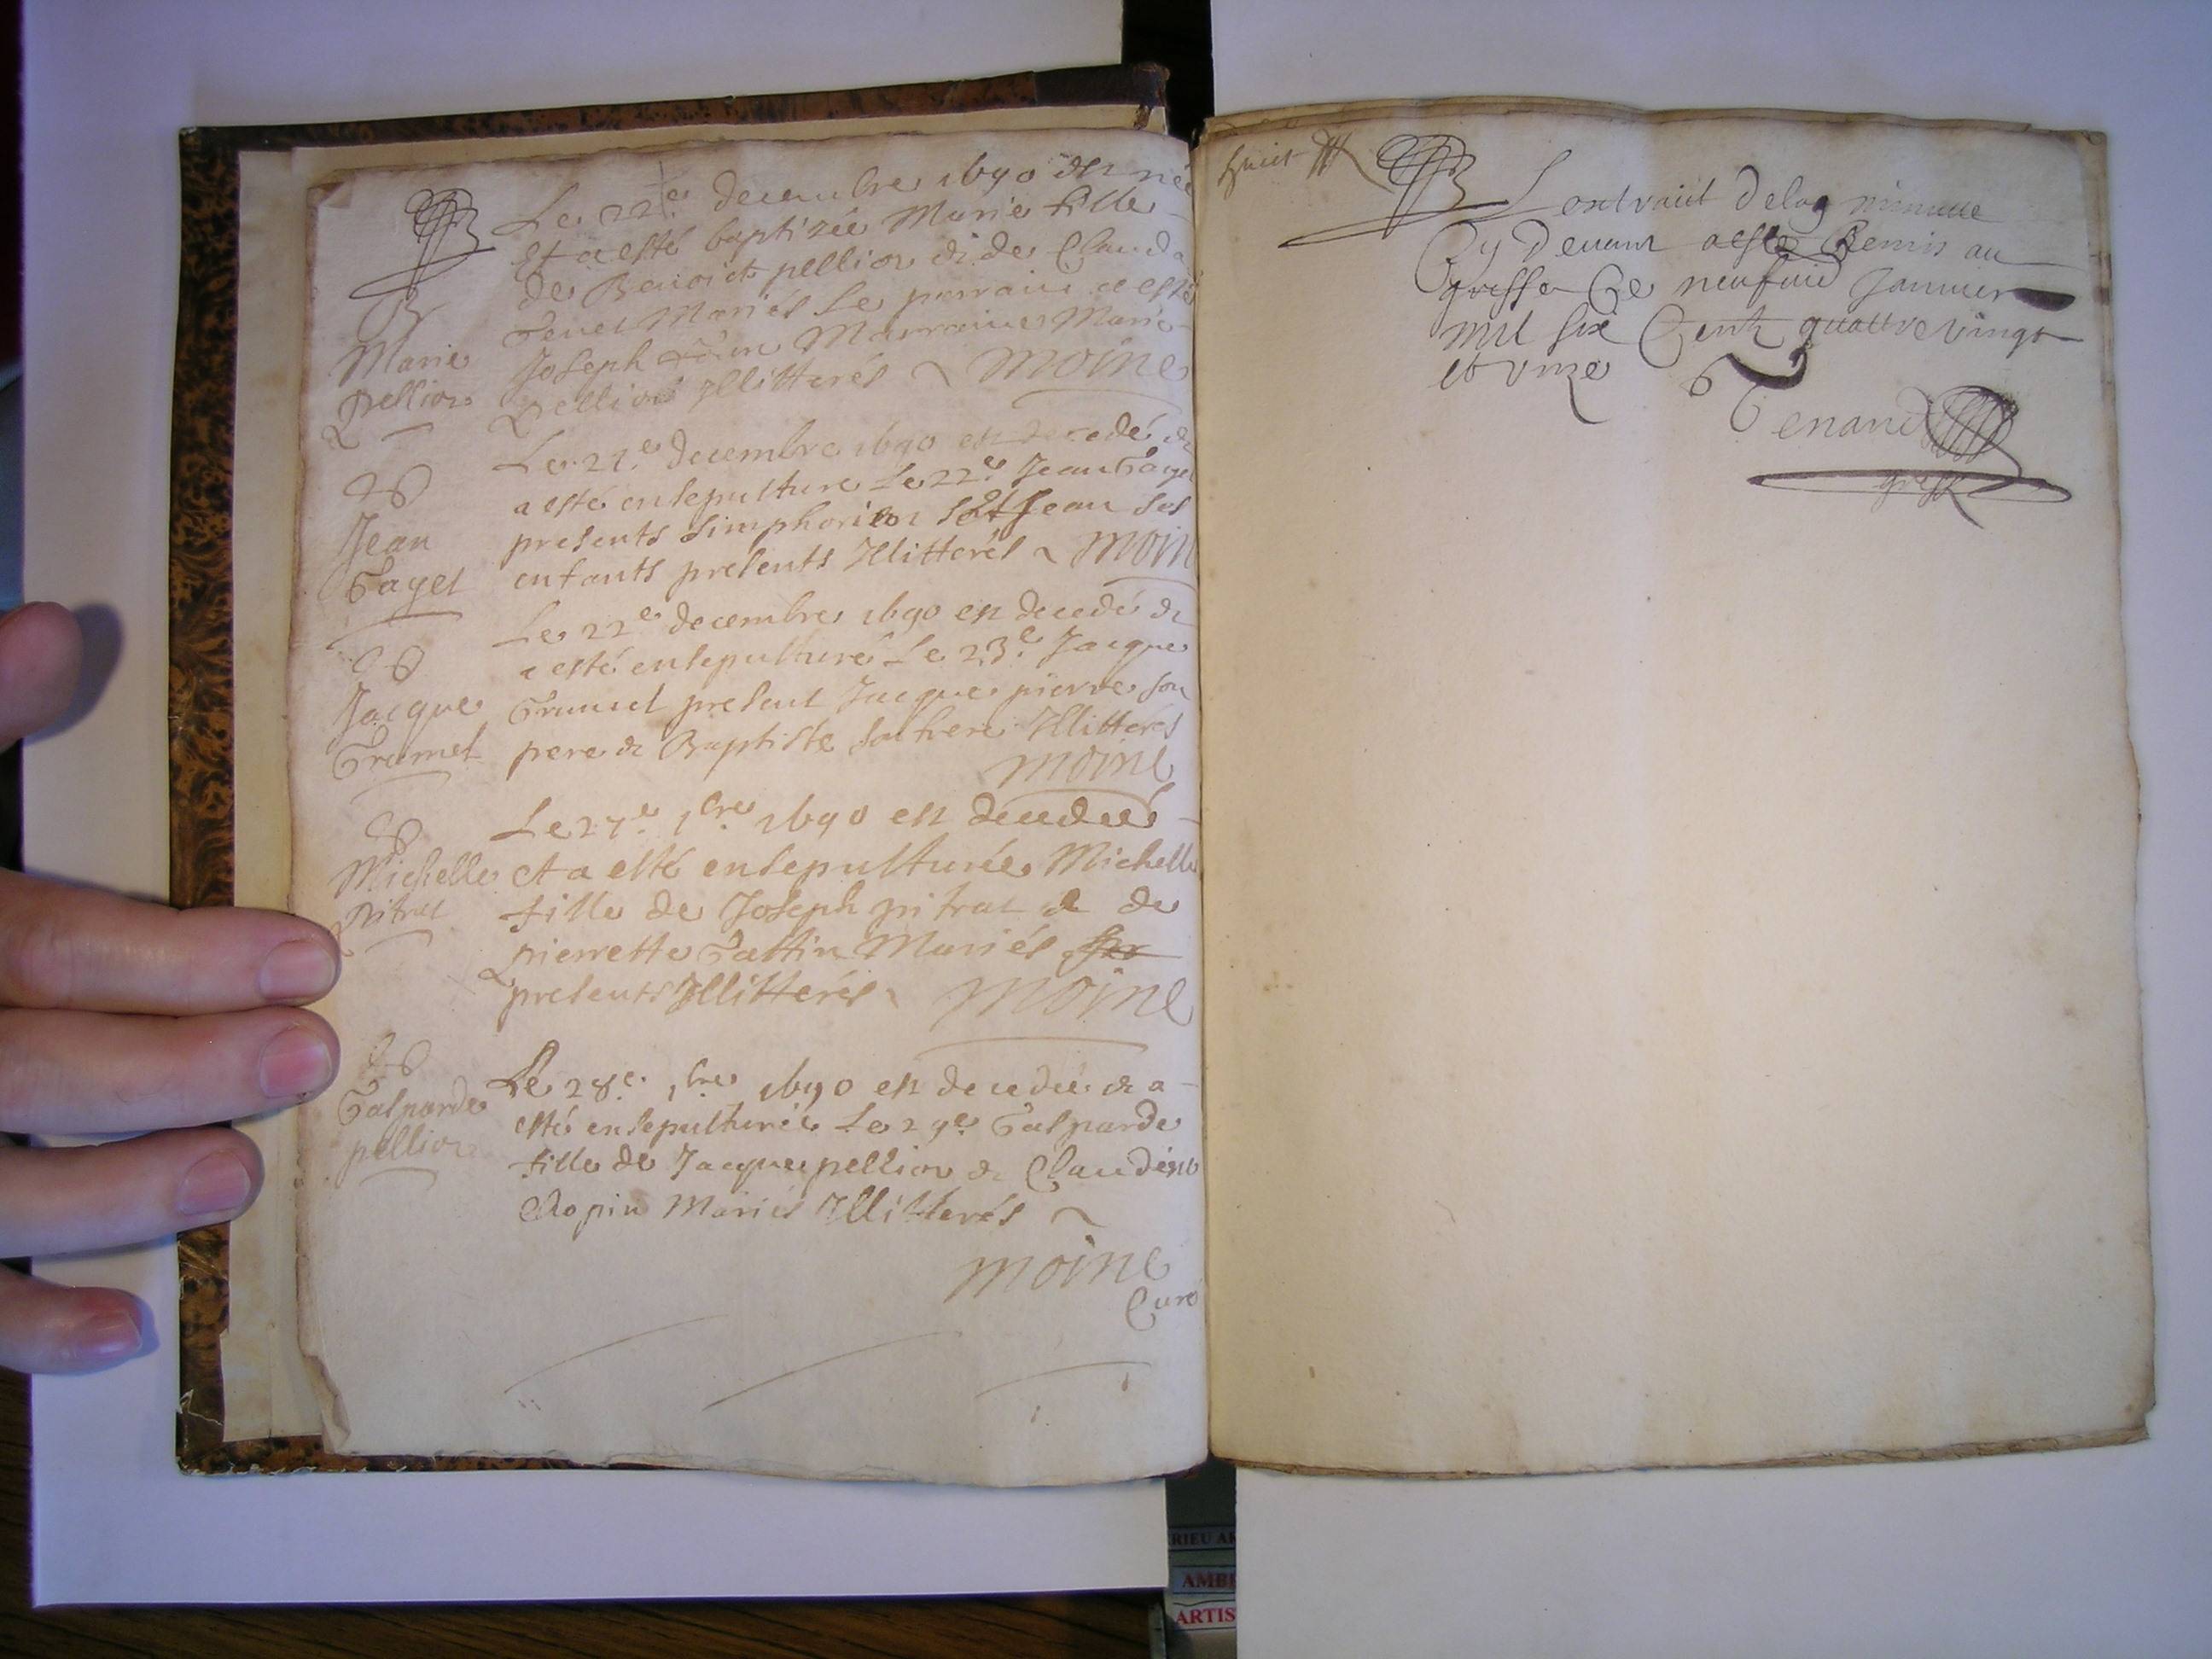 B
Marie
pellion
Le 22e decembre 1690 est née
Et a esté baptizée Marie fille
de Benoict pellion & de Clauda
Mariés Le parrain a esté
Joseph Marraine Marie
pellion Illitterés moine
Jean
Gayet
Le 21e decembre 1690 est decedé &
a esté ensepulturé Le 22e Jean Gayet
presents Simphorien Jean ses
enfants presents Illitterés moin
Jacque
Gramel
Le 22e decembre 1690 est decedé &
a esté ensepulturé Le 23e Jacque
present Jacque pierre son
pere & Baptiste son frere Illitterés
moine
Michelle
pitrat
Le 27e xbre 1690 est decedée
et a esté ensepulturée Michelle
fille de Joseph pitrat & de
pierrette Gattin Mariés
presents Illitterés moine
Gasparde
pellion
Le 28e xbre 1690 est decedée & a
esté ensepulturée Le 29e Gasparde
fille de Jacque pellion & Claudine
Chopin Mariés Illitterés
moine
Curé
huit
L'extraict de la minutte
Cy devant a esté Remis au
greffe Ce neufvie Janvier
mil six Cent quattre vingt
et unze
Tenand
greff
RIEU AR
AMBE
ARTIS